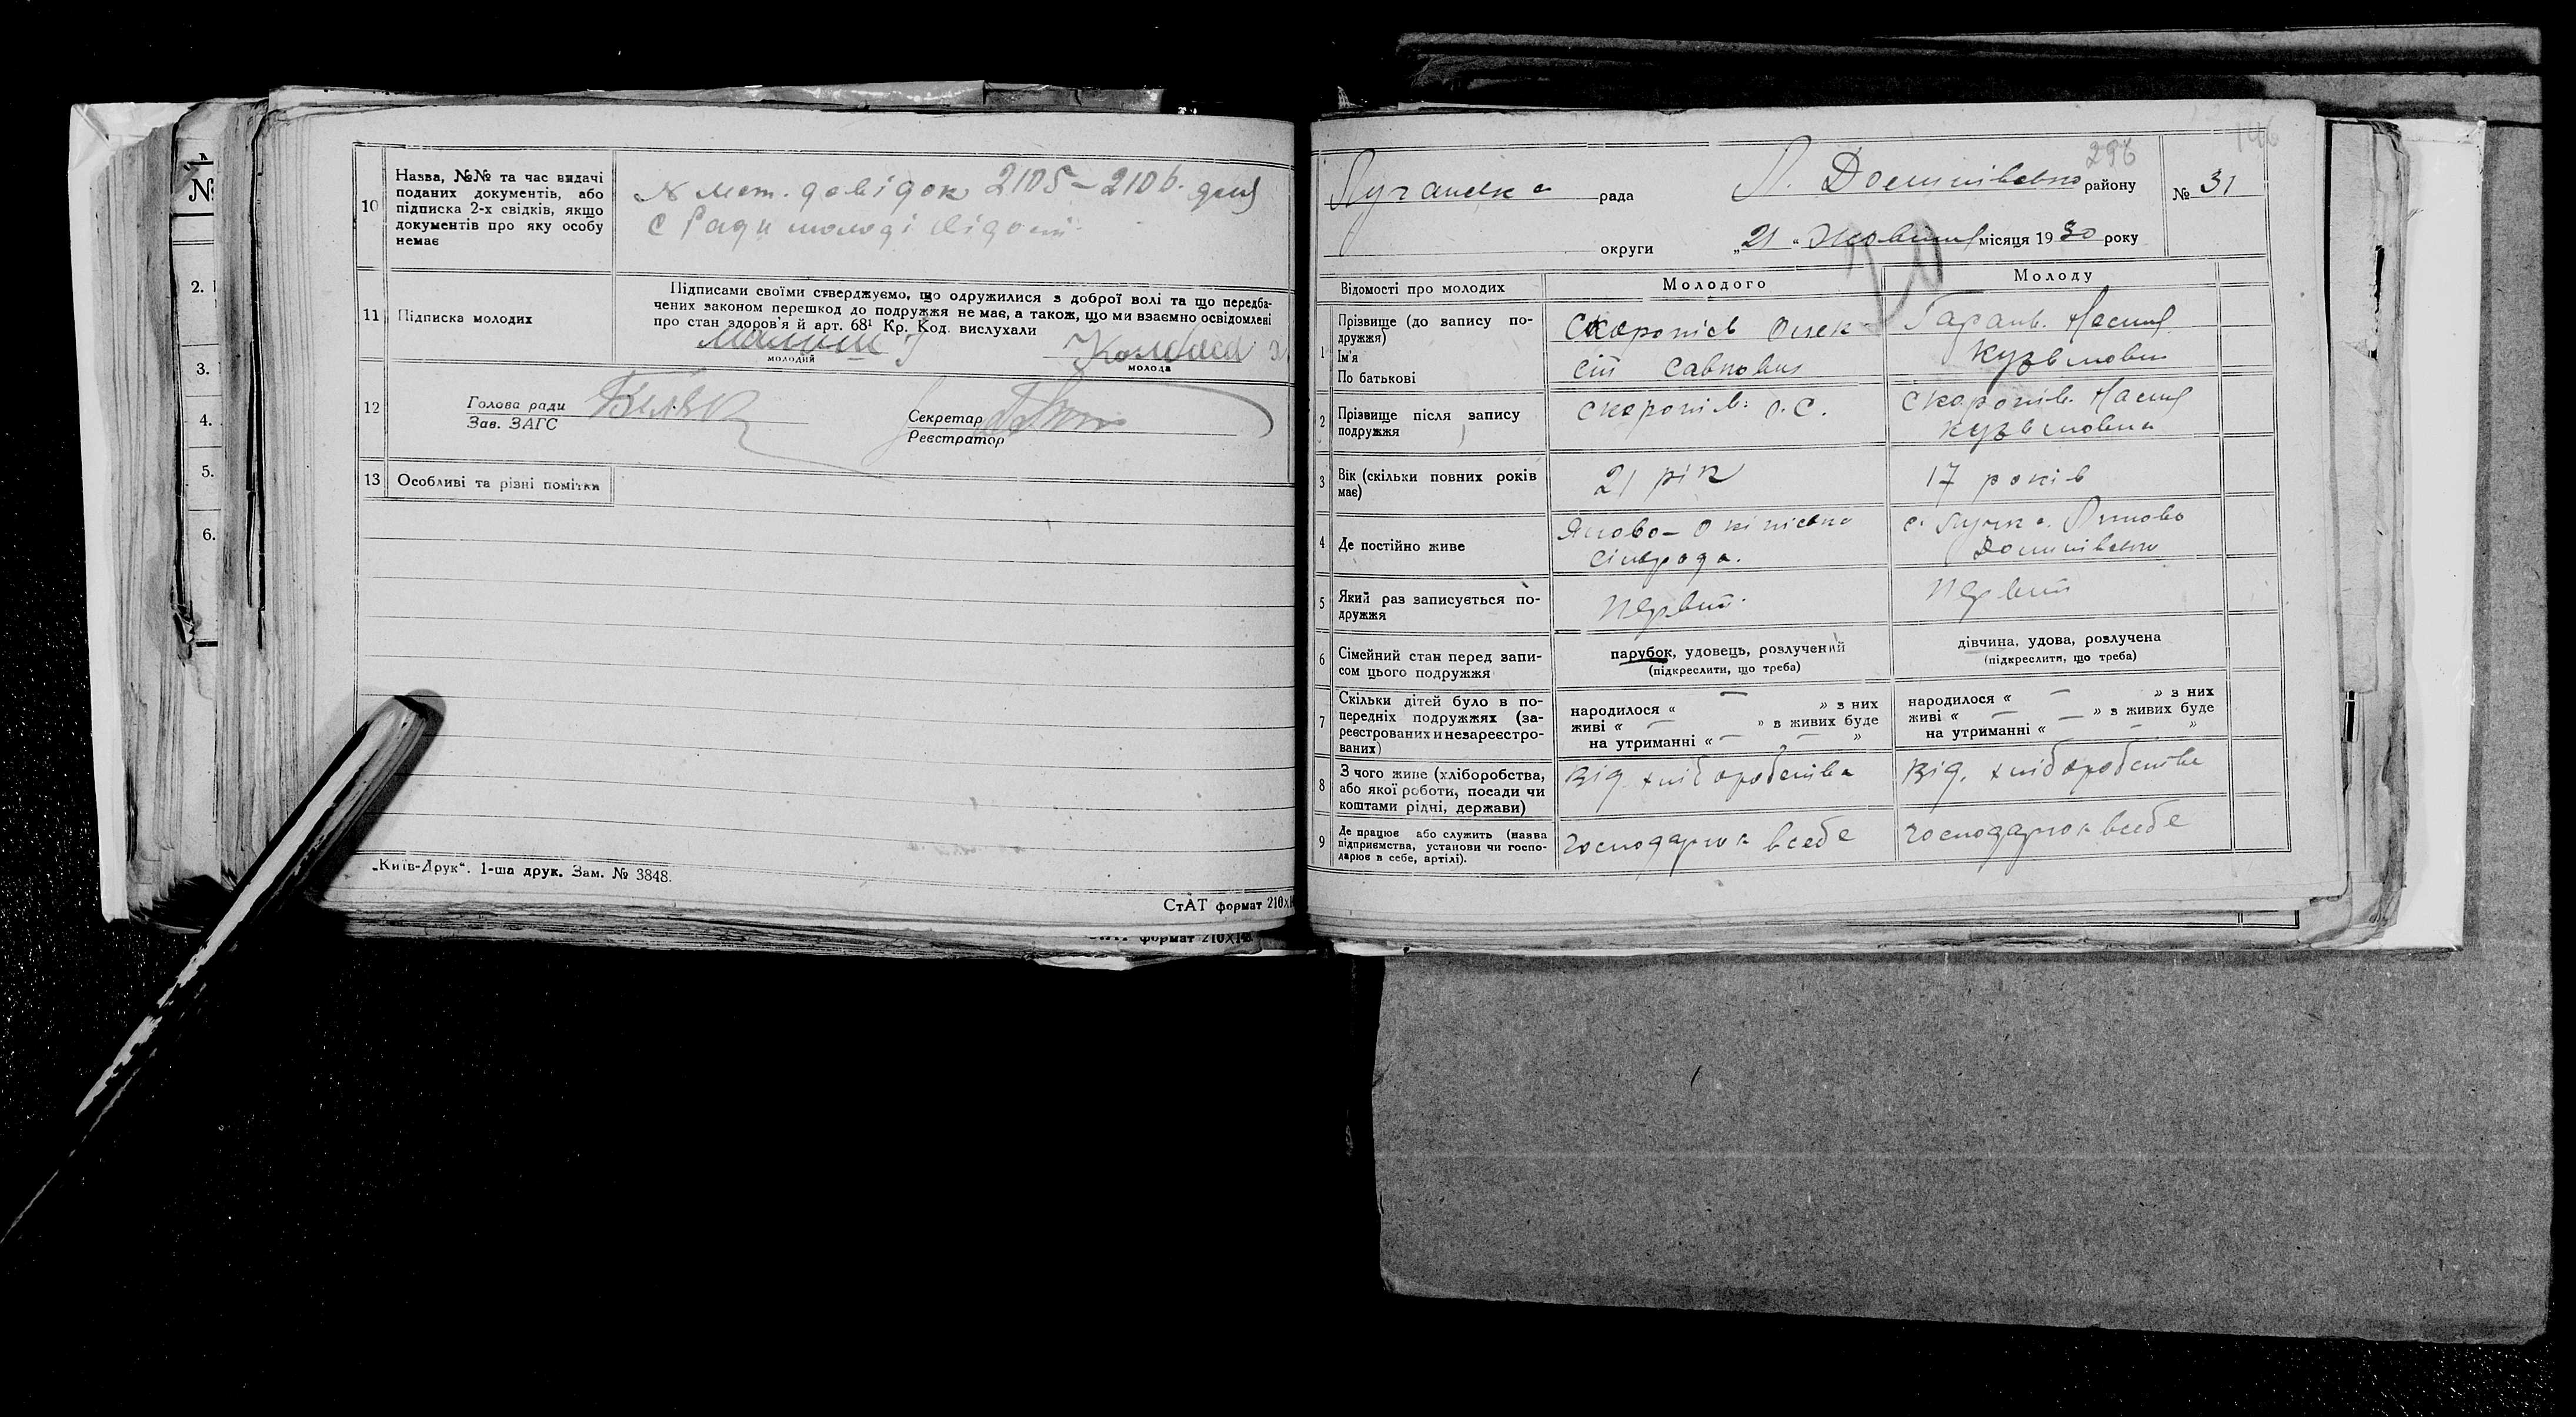 10
Назва, №№ та час видачі
поданих документів, або
підписка 2-х свідків, якщо
документів про яку особу
немає
довідок 2105-2106.
11 Підписка молодих
Підписами своїми стверджуємо, що одружилися з доброї волі та що передба-
чених законом перешкод до подружжя не має, а також, що ми взаємно освідомлені
про стан здоров'я й арт. 68¹ Кр. Код. вислухали
молодий
молода
12
Голова ради
Зав. ЗАГС
Секретар
Реєстратор
13 Особливі та різні помітки
„Київ-Друк“. 1-ша друк. Зам. № 3848.
СтАТ формат 210х
формат 210Х148
№
2.
3.
4.
5.
6.
146
296
рада
району
№ 31
округи
„21“ Жовтня місяця 1930 року
Відомості про молодих
Молодого
Молоду
1
Прізвище (до запису по-
дружжя)
Ім'я
По батькові
Скоропів Олек-
сій Савович
Настя
Кузьмовна
2
Прізвище після запису
подружжя
Скоропів. О. С.
Скоропів. Настя
Кузьмовна
3
Вік (скільки повних років
має)
21 рік
17 років
4 Де постійно живе
сільрада.
5
Який раз записується по-
дружжя
Первий.
Первий
6
Сімейний стан перед запи-
сом цього подружжя
парубок, удовець, розлучений
(підкреслити, що треба)
дівчина, удова, розлучена
(підкреслити, що треба)
7
Скільки дітей було в по-
передніх подружжях (за-
реєстрованих и незареєстро-
ваних)
народилося « — » з них
живі « — » з живих буде
на утриманні « — »
народилося « — » з них
живі « — » з живих буде
на утриманні « — »
8
З чого живе (хліборобства,
або якої роботи, посади чи
коштами рідні, держави)
Від. хліборобства
Від. хліборобства
9
Де працює або служить (назва
підприємства, установи чи госпо-
дарює в себе, артілі).
господарює в себе
господарює в себе